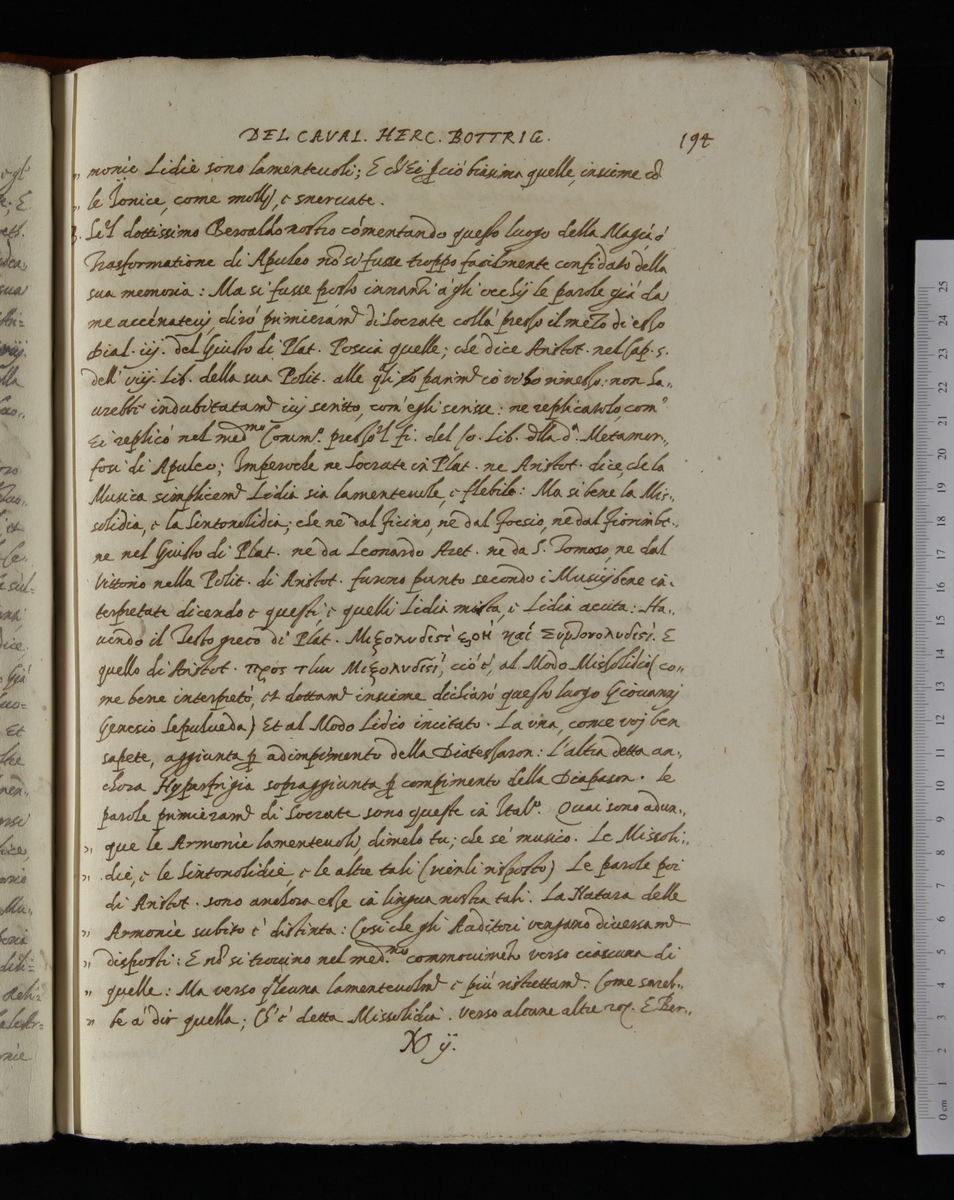 DEL CAVAL. HERC. BOTTRIG. 194
„ monie Lidie sono lamenteuoli; E ch'Ei p ciò biasima quelle, insieme cō
„ le Ionice, come molli, e sneruate.
Se'l dottissimo Beroaldo nostro cómentando questo luogo della Magia, ó
Trasformatione di Apuleo nō si fusse troppo facilmente confidato della
sua memoria: Ma si fusse posto innanti á gli occhij le parole giá da
me accénateuj, diró primieramᵉ di Socrate collá presso il mezo di esso
Dial. iij. del Giusto di Plat. Poscia quelle; che dice Aristot. nel Cap. 5.
dell' viij Lib. della sua Polit. alle qˡⁱ parimᵉ có rimesso: non ha„
urebbe indubitatamᵉ iuj scritto, com'egli scrisse: ne replicatolo comᵉ
Ei replicó nel medᵐᵒ Comm.ᵒ presso'l fi. del Lib. dlla dᵃ Metamor„
fosi di Apuleo; Imperoche ne Socrate in Plat. ne Aristot. dice, che la
Musica simplicemᵉ Lidia sia lamenteuole, e flebile: Ma si bene la Mis„
solidia, e la Sintonolidia; che ne dal Ficino, ne dal Foesio, ne dal Fiorimbe„
ne nel Giusto di Plat. ne da Leonardo Aret. ne da S. Tomaso, ne dal
Vittorio nella Polit. di Aristot. furono punto secondo i Musici bene in„
terpretate dicendo e questi, e quelli Lidia mista, e Lidia accuta: Ha„
uendo il Testo greco di Plat. Μιξολυδιςί καί Συντονολυδιςί. E
quello di Aristot. πρὸς τὴν Μιξολυδιςί, ció é, al Modo Missolidio (co„
me bene interpretó, et dottamᵉ insieme dichiaró questo luogo Giouannj
Genesio Sepulueda) Et al Modo Lidio incitato. La vna, come voj ben
sapete, aggiunta p adimpimento della Diatessaron: L'altra detta an„
chora Hyperfrigia sopraggiunta p compimento della Diapason. Le
parole primieramᵉ di Socrate sono queste in Italᵒ. Quai sono adun„
„ que le Armonie lamenteuoli, dimelo tu; che se' musico. Le Missoli„
„ die, e le Sintonolidie, e le altre tali (vienli risposto) Le parole poi
di Aristot. sono anchora esse in lingua nostra tali. La Natura delle
„ Armonie subito é distinta: Cosi che gli Auditori vengano diuersamᵉ
„ disposti: E nō si trouino nel med.ᵐᵒ commouimēto verso ciascuna di
„ quelle: Ma verso qˡcuna lamenteuolmᵉ e piú ristrettamᵉ. Come sareb„
„ be á dir quella; Ch'é detta Missolidia. Verso alcune altre E Ber„
ij.